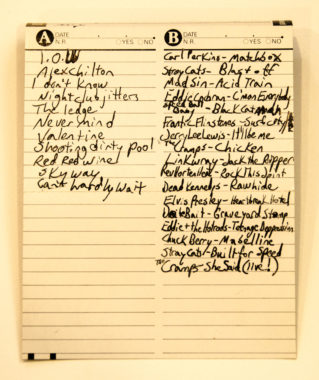 A DATE N.R. YES NO
I.O.U
Alex Chilton
I don't Know
Nightclub jitters
The ledge
Nevermind
Valentine
Shooting dirty pool
Red Red Wine
Skyway
Can't Hardly Wait
B DATE N.R. YES NO
Carl Perkins - Matchbox
Stray Cats - Blast off
Mad Sin - Acid Train
Eddie Cochran - C'mon Everybody
Speed Ball Baby - Black Cat
Frantic Flinstones - Surf City
Jerry Lee Lewis - It'll be me
The Cramps - Chicken
Link Wray - Jack the Ripper
Rev Horton Heat - Rock This Joint
Dead Kennedys - Rawhide
Elvis Presley - Heartbreak Hotel
Bait - Graveyard Stomp
Eddie & the Hotrods - Teenage Depression
Chuck Berry - Mabelline
Stray Cats - Built for Speed
The Cramps - She Said (live!)